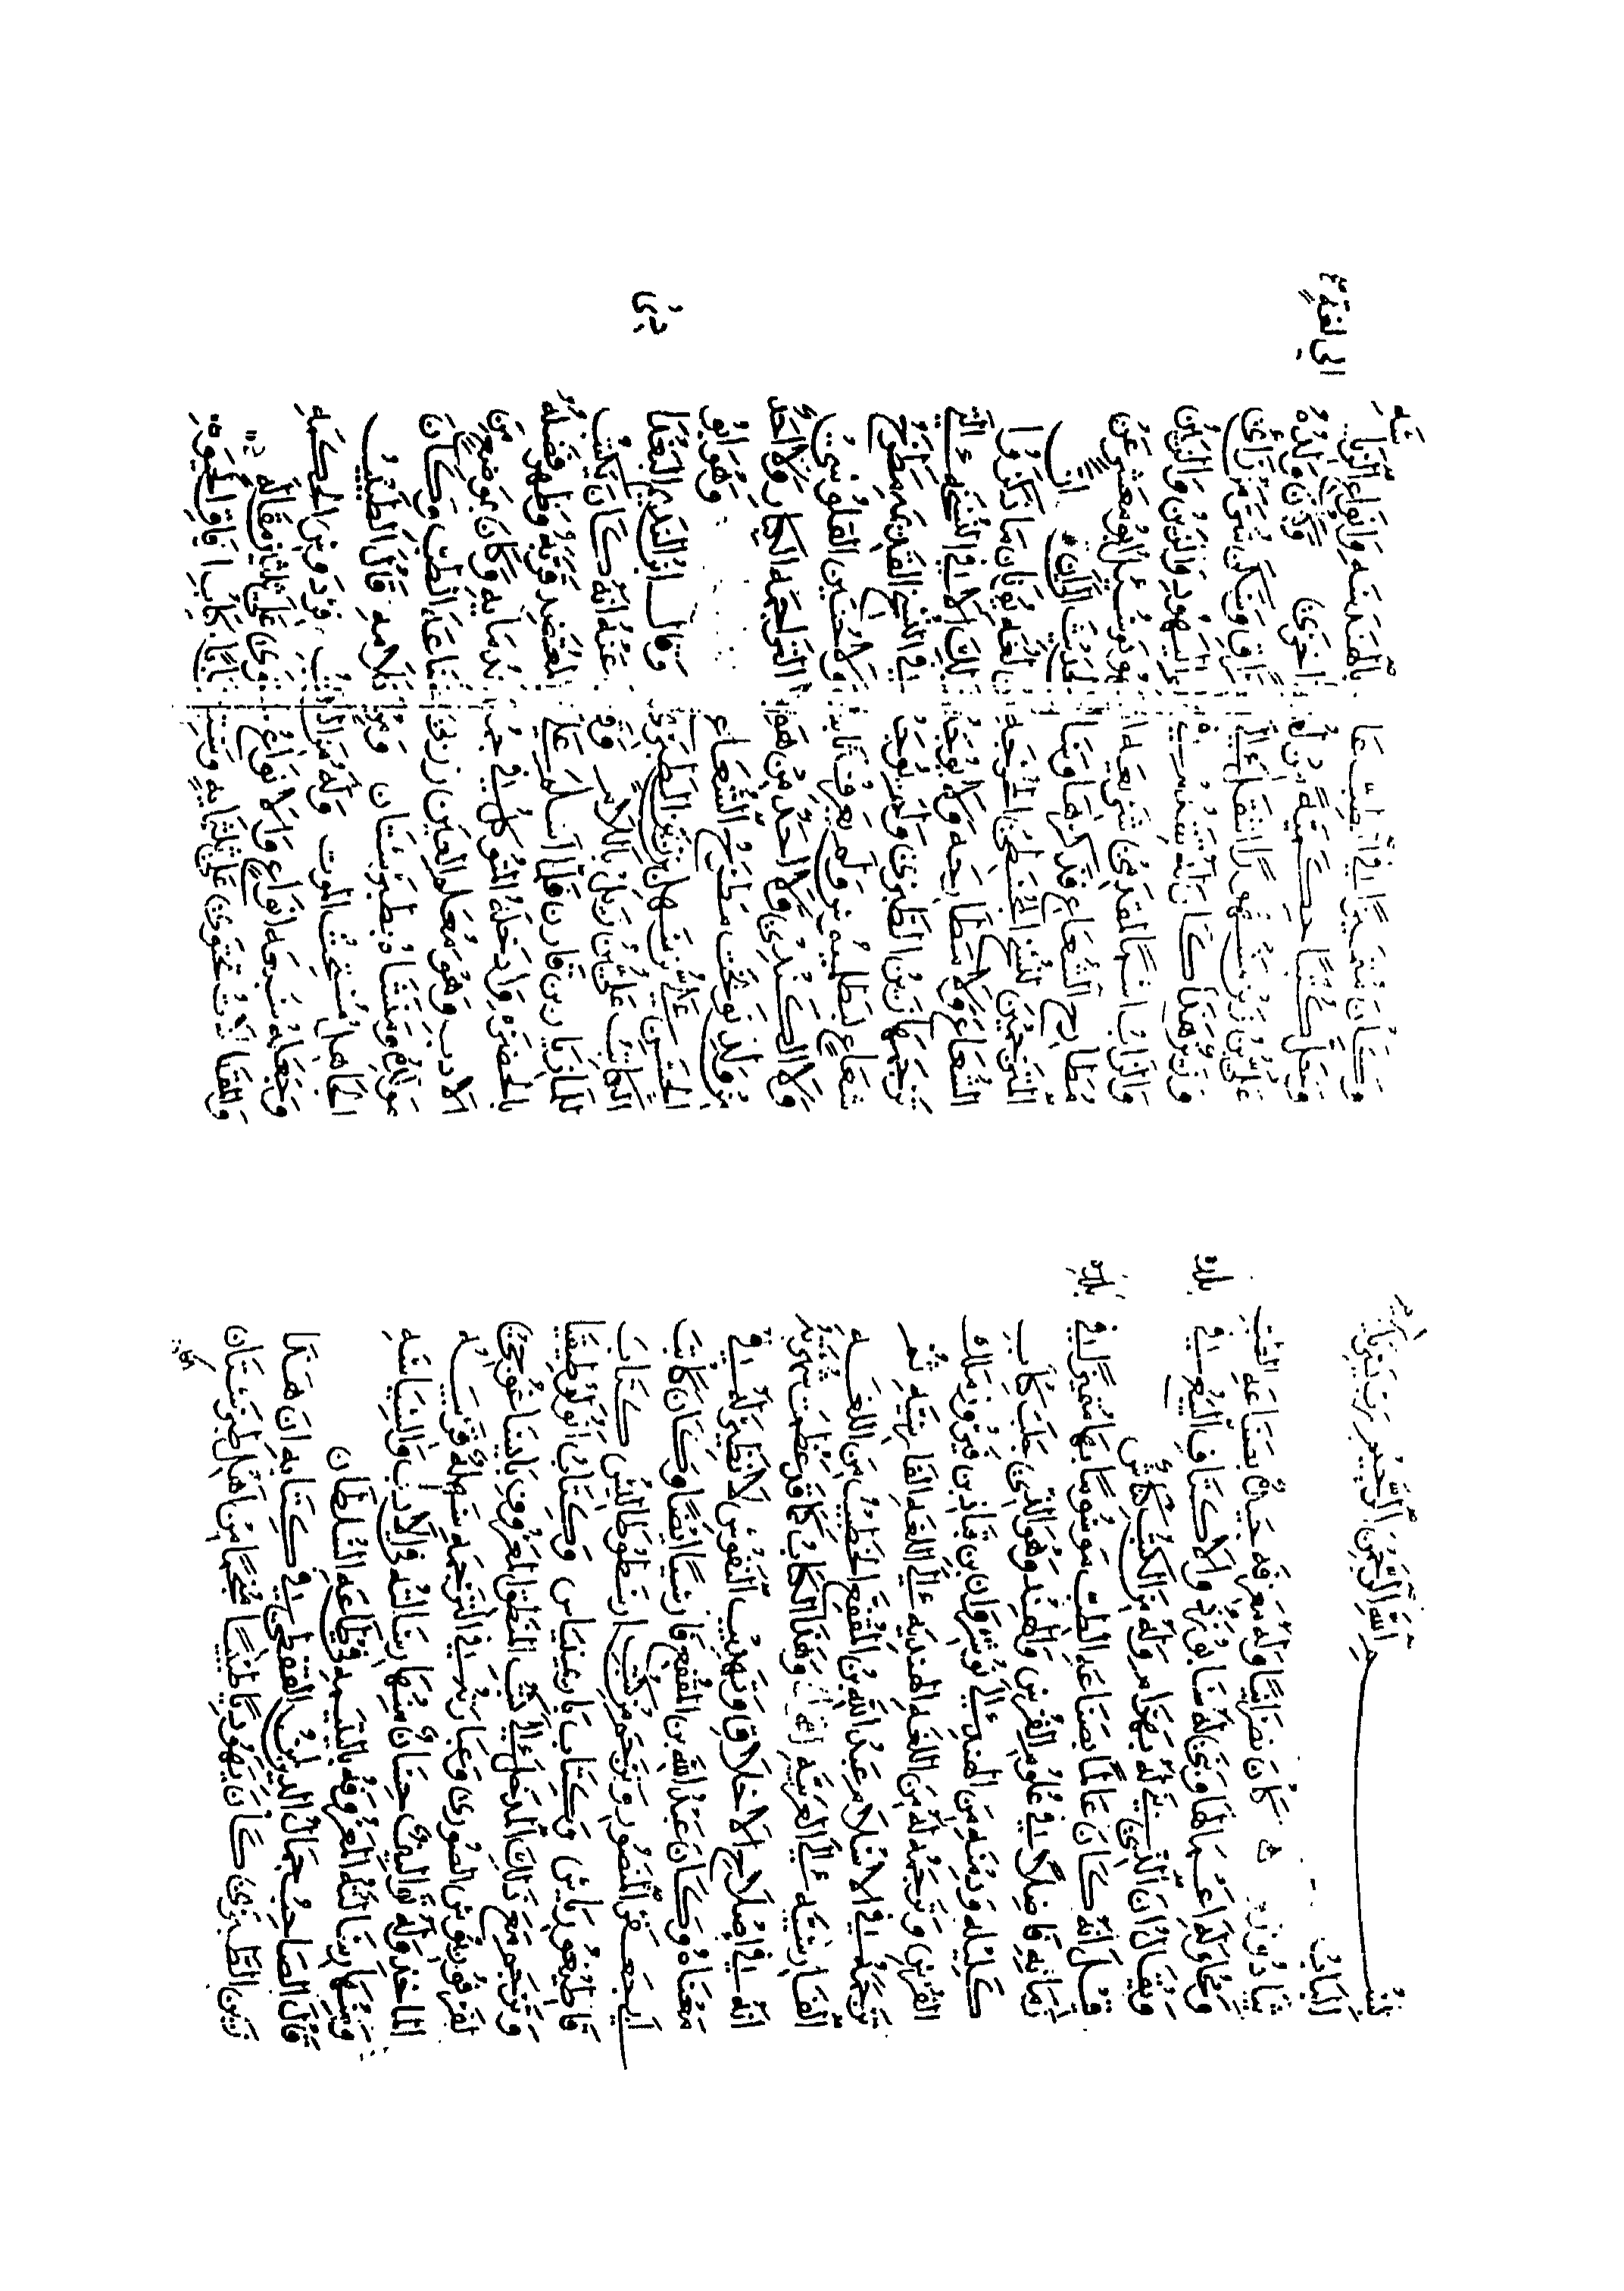 بسم الله الرحمن الرحيم رب يسر
الباب
تيادورس كان نصرانيا وله معرفة جيدة بصناعة الطب
ومحاولة لاعمالها وبنى له سابور ذو الاكتاف البيع في بلده
ويقال ان الذي بنى له بهرام وله من الكتب كناش
قيل انه كان عالما بصناعة الطب موسوما بها متميزا في
زمانه فاضلا في علوم الفرس والهند وهو الذي جلب كتاب
كليله ودمنه من الهند الى انوشروان بن قباذ بن فيروز ملك
الفرس وترجمه له من اللغه الهنديه الى اللغه الفارسيه ثم
ترجمه في الاسلام عبد الله بن المقفع الخطيب من اللغه
الفارسيه الى العربيه وهذا الكتاب كما قد عظمت شهرته
انه في اصلاح الاخلاق وتهذيب النفوس لا نظير له في
معناه وكان عبد الله بن المقفع فارسيا ايضا وكان كاتب
ابي جعفر المنصور وترجم من كتب ارسطوطاليس كتاب
قاطيغورياس وكتاب بارمينياس وكتاب انولوطيقا
وترجم مع ذلك المدخل الى كتب المنطق المعروف بايساغوجي
لفرفوريوس الصوري وعبارته في الترجمه سهلة قريبه
الماخذ وله تواليف حسان منها رسالته في الادب والسياسه
ومنها رسالته المعروفه باليتيمه في طاعه السلطان
قال الصاحب جمال الدين القفطي في كتابه ان هذا
ربن الطبري كان يهوديا طبيبا منجما من اهل طبرستان
وكان متميزا في الطب عالما بالهندسه وانواع الرياضه
وحل كتبا حكمية من لغه الى لغة اخرى وكان ولده
علي بن ربن مشهورا انتقل الى العراق وسكن سر من راى
وربن هذا كان له تقدم في علم اليهود والربن والربين
والراب اسما لمقدمي شريعه اليهود وسئل ابو معشر عن
مطارح الشعاع فذكرها وساق الحديث الى ان قال ان
المترجمين لنسخ المجسطي المخرجه من لغه يونان ما ذكروا
الشعاع ولا مطارحه ولا يوجد ذلك الا في النسخه التي
ترجمها ربن الطبري ولم يوجد في النسخ القديمه مطرح
شعاع بطلميوس ولم يعرفه ثابت ولا حنين القلوسي
ولا الكندي ولا احد من هؤلاء التراجمه الكبار ولا احد
من ولد نوبخت مطرح الشعاع وهو ابو
الحسن علي بن سهل بن ربن الطبري وقال ابن النديم البغدادي
الكاتب علي بن ربل باللام وقال عنه انه كان يكتب
للمازيار بن قارن فلما اسلم على يد المعتصم قربه وظهر فضله
بالحضره وادخله المتوكل في جمله ندمايه وكان بموضع من
الادب وهو معلم العين زربي صناعه الطب وكان
مولده ومنشاه بطبرستان ومن كلامه قال الطبيب
الجاهل مستحث الموت وله من الكتب فردوس الحكمه
وجعله سبعه انواع والانواع تحتوي على ثلثين مقاله
والمقالات تحتوي على ثلثمايه وستين بابا كتاب ارفاق الحيوه